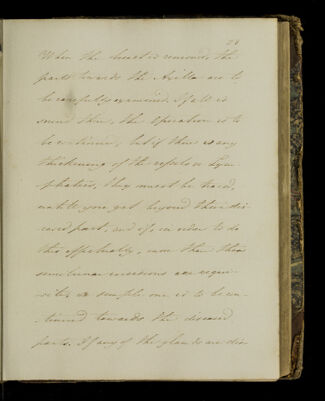 28
When the breast is removed, the
parts towards the Axilla are to
be carefully examined. If all is
sound there, the operation is to
be continued, but if there is any
thickening of the absorbent Lym-
phatics, they must be traced,
until you get beyond their dis-
eased part, and if, in order to do
this effectually, more than these
semilunar incisions are requi-
site a simple one is to be con-
tinued towards the diseased
parts. If any of the glands are dis-